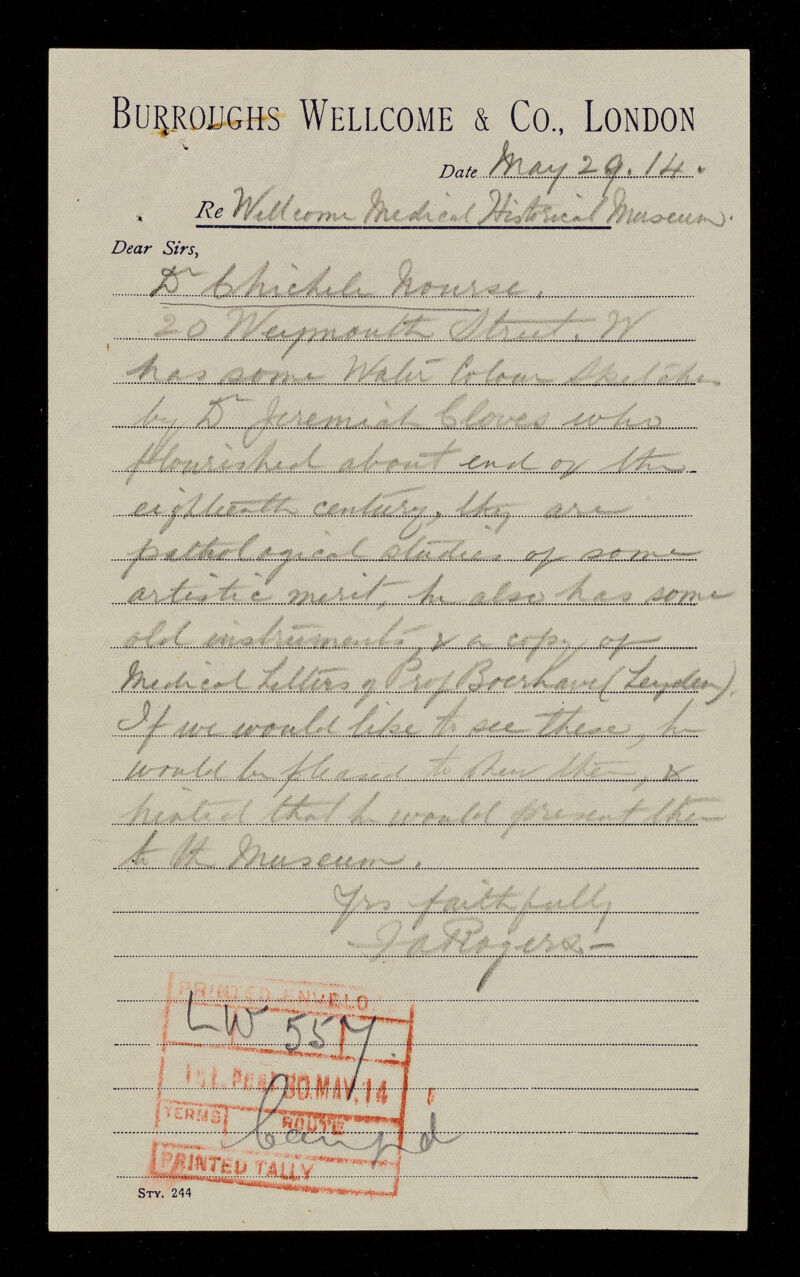 BURROUGHS WELLCOME & CO., LONDON
Date May 29. 14.
Re Wellcome Medical Historical Museum.
Dear Sirs,
Dr Chichele Nourse.
20 Weymouth Street. W
has some Water Colour Sketches
by Dr Jeremiah Cloves who
flourished about end of the
eighteenth century, they are
pathological studies of some
artistic merit, he also has some
old instruments & a copy of
Medical Letters of Prof Boerhave (Leyden).
If we would like to see these, he
would be pleased to shew them, &
hinted that he would present them
to the Museum.
Yrs faithfully
Rogers
PRINTED ENVELO
LW 557.
1st. POST 30. MAY. 14
TERMS ROUTE
PRINTED TALLY
STY. 244